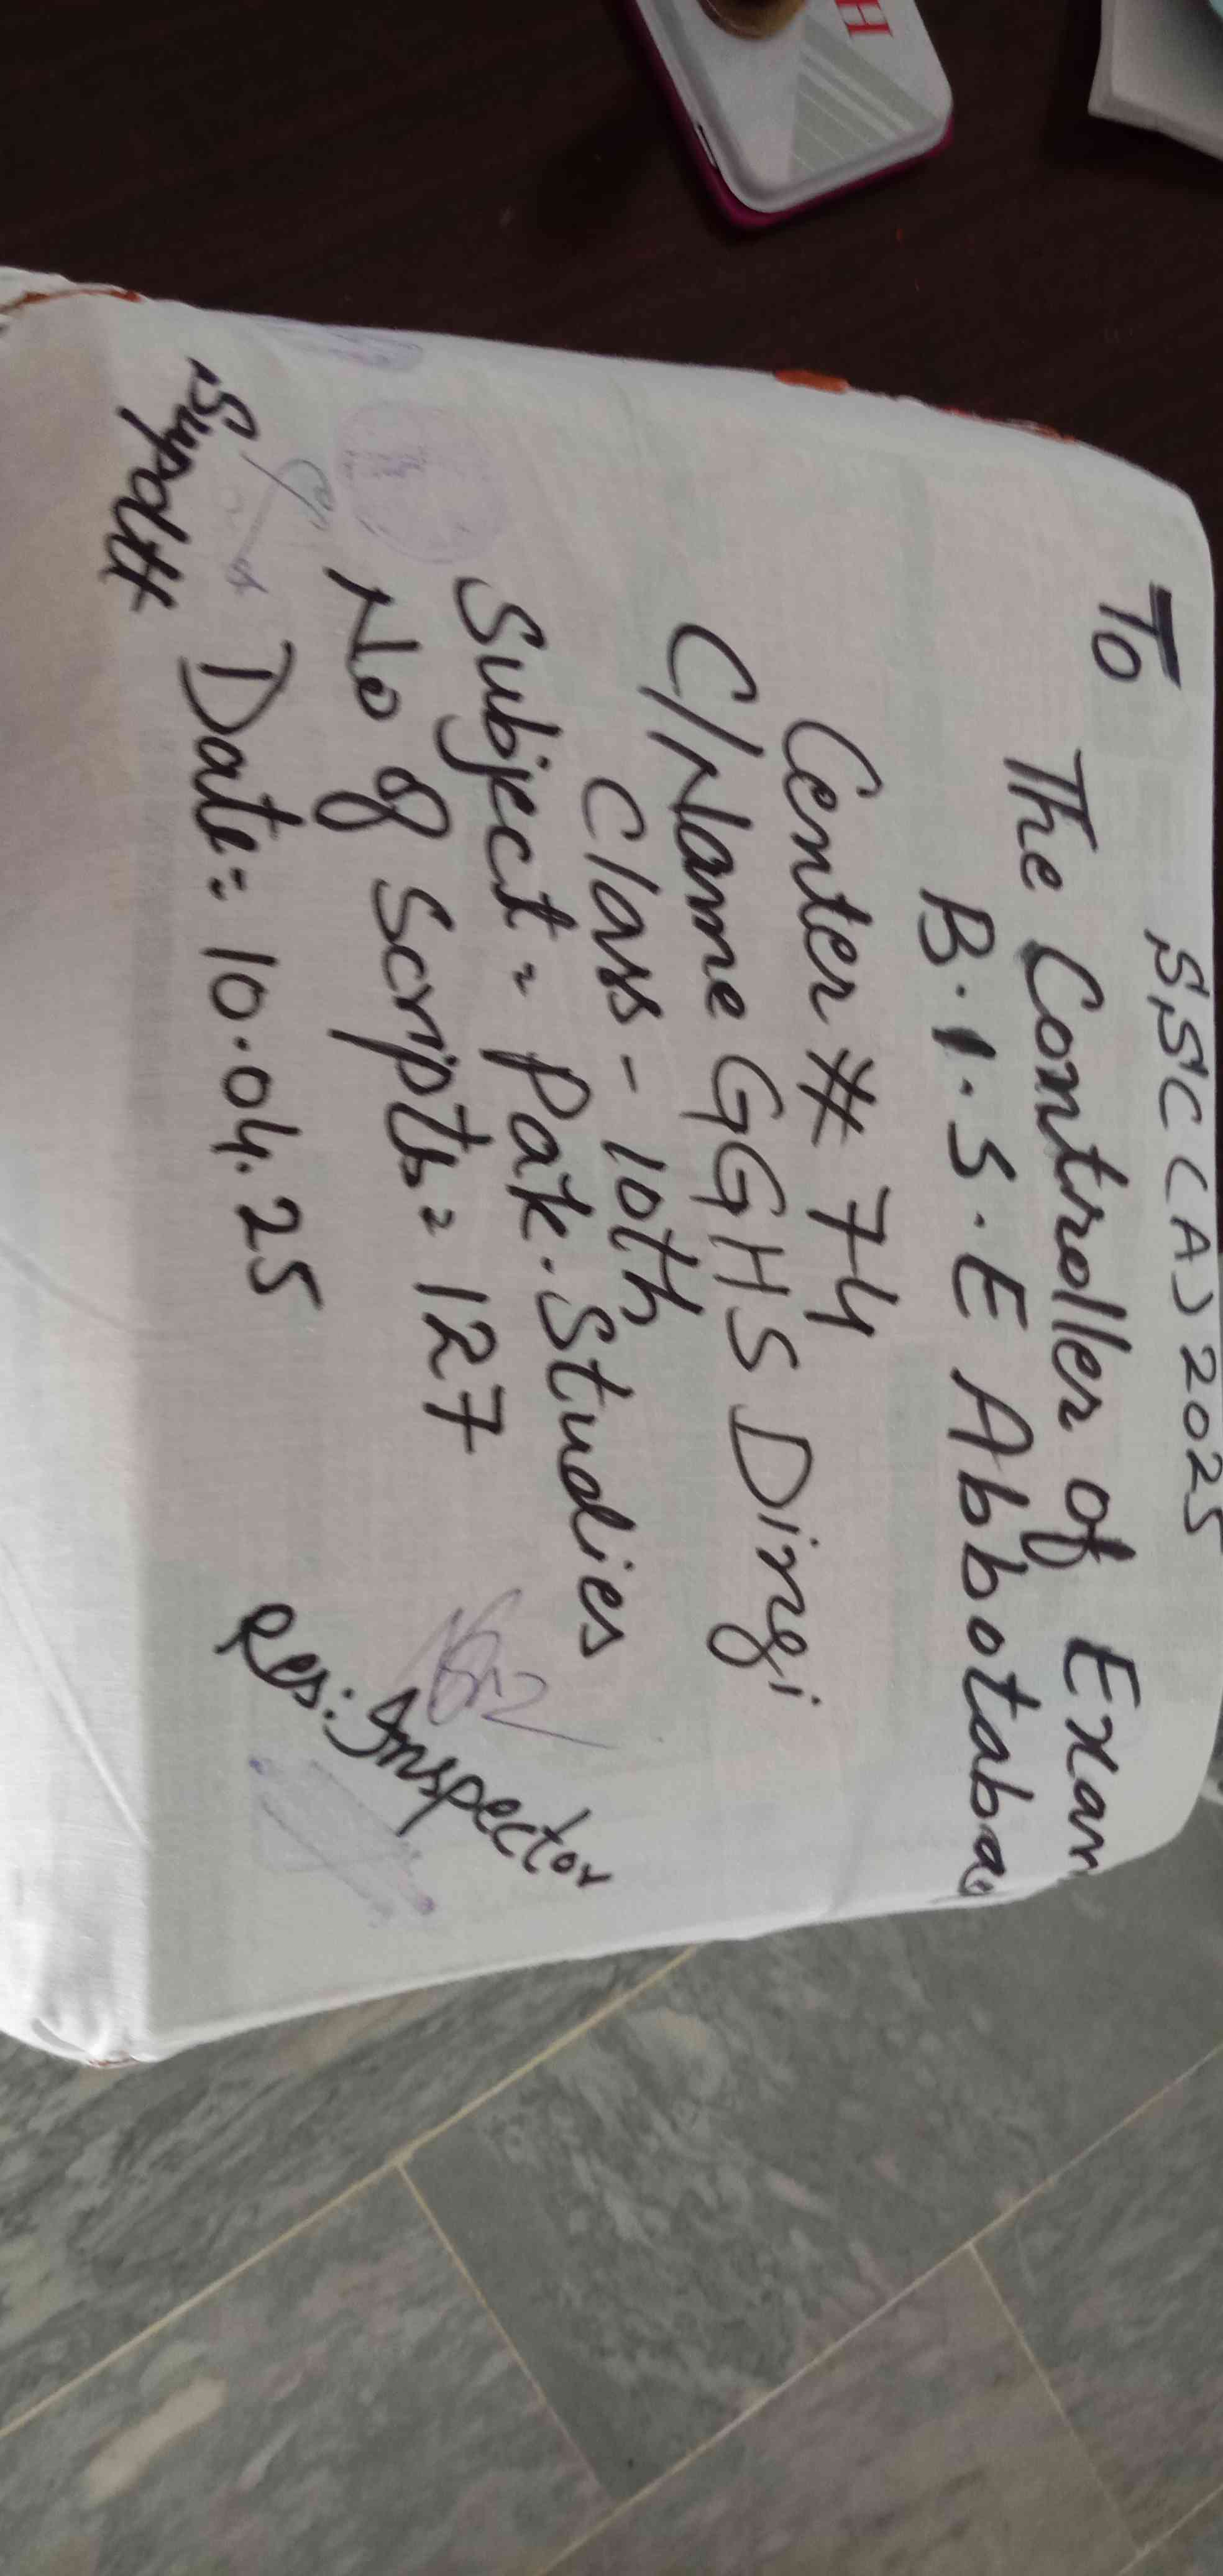 SSC (A) 2025
To
The Controller of Exam
B.I.S.E Abbotaba
Center # 74
C/Name GGHS Dingi
Class - 10th
Subject = Pak. Studies
No of Scripts = 127
Date = 10.04.25
Supdtt
Res: Inspector
H